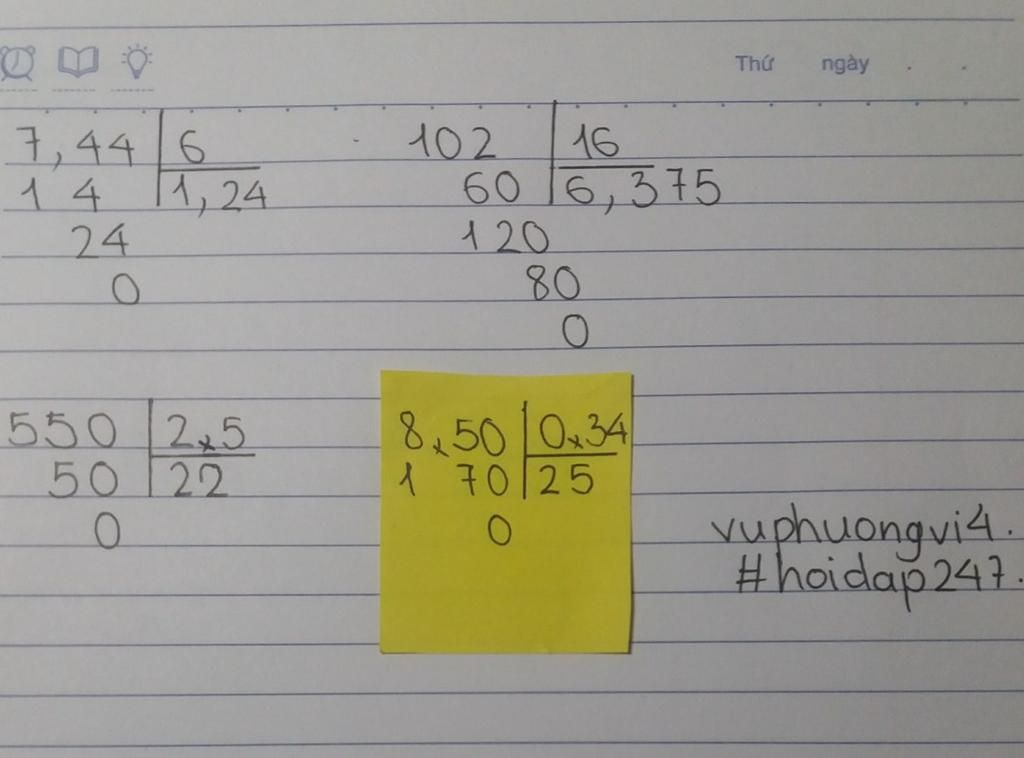 Thứ ngày . .
7,44 6 102 16
1 4 1,24 60 6,375
24 120
0 80
0
550 2,5 8,50 0,34
50 22 1 70 25
0 0
vuphuongvi4.
#hoidap247.